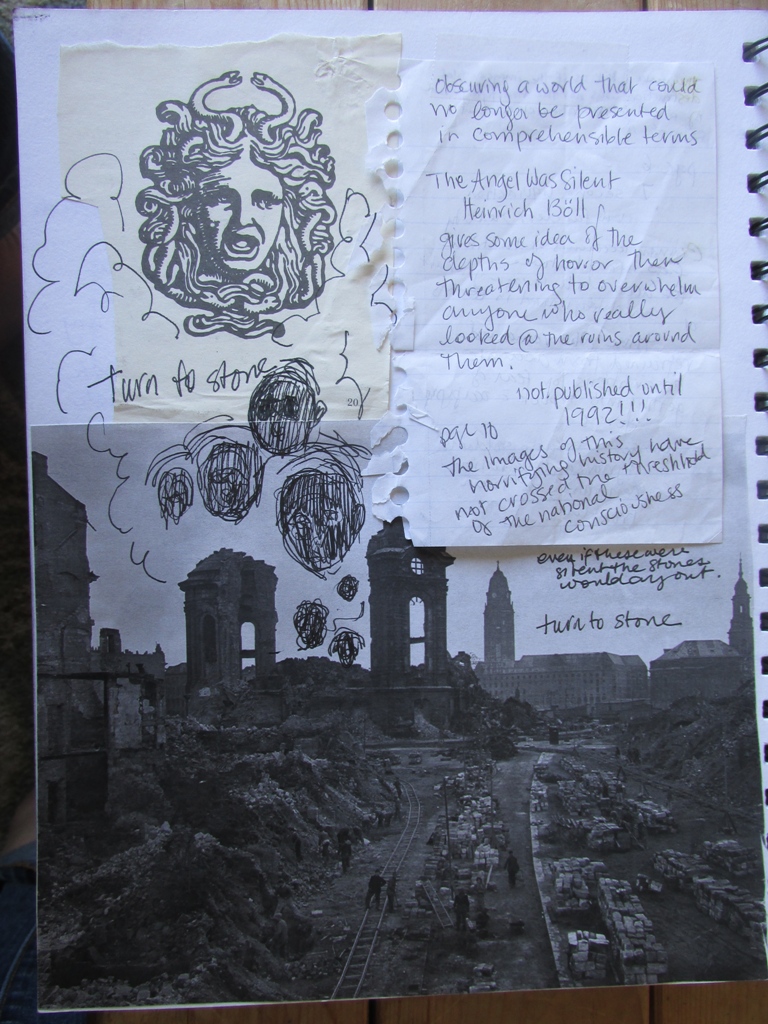 obscuring a world that could
no longer be presented
in comprehensible terms
The Angel Was Silent
Heinrich Böll
gives some idea of the
depths of horror then
threatening to overwhelm
anyone who really
looked @ the ruins around
them.
not published until
1992!!!
pge 10
the images of this
horrifying history have
not crossed the threshold
of the national
consciousness
turn to stone
20
even if these were
silent the stones
would cry out.
turn to stone